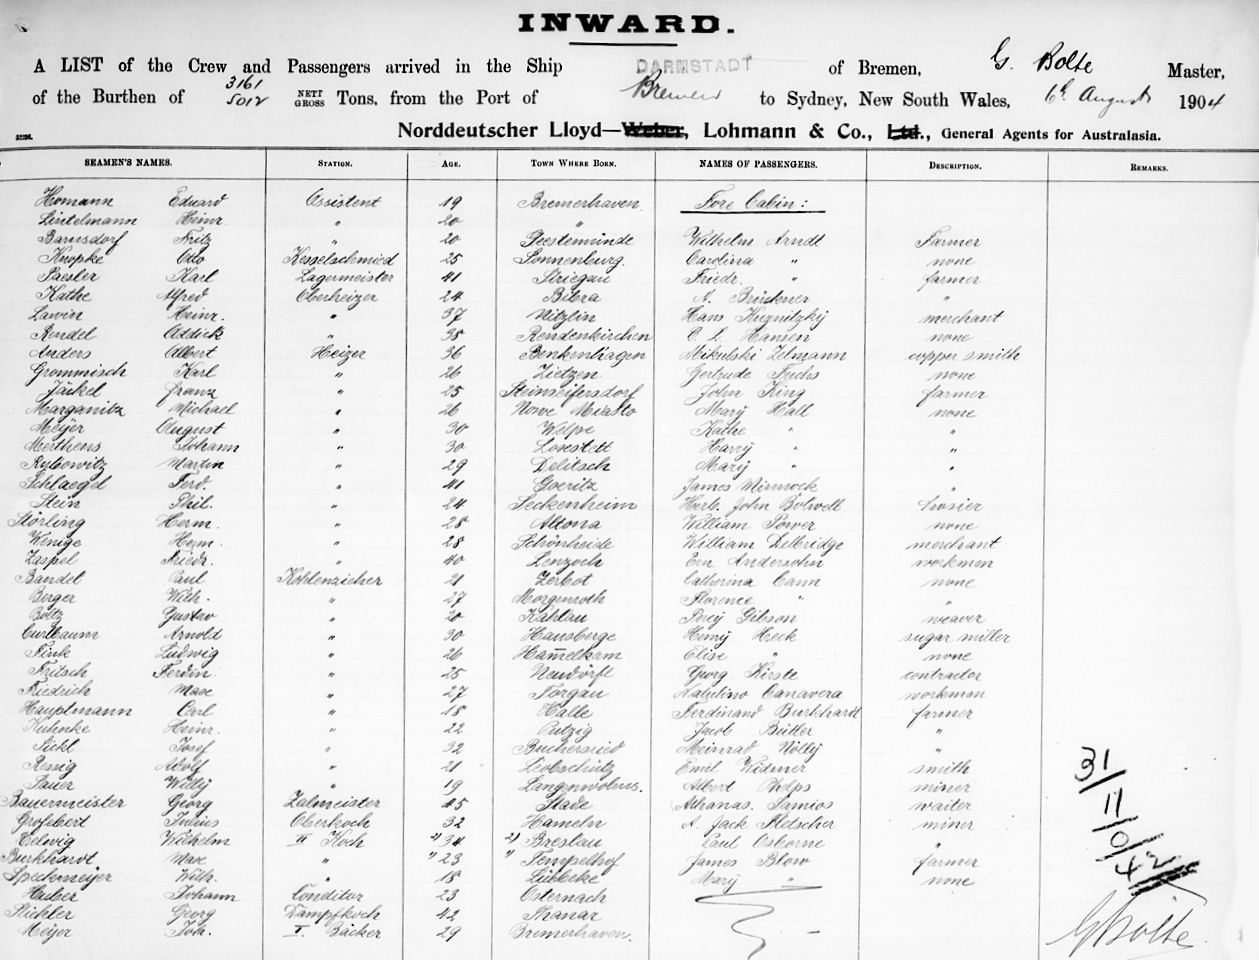 INWARD.
A LIST of the Crew and Passengers arrived in the Ship DARMSTADT of Bremen, G. Bolte Master,
of the Burthen of 3161 5012 NETT GROSS Tons, from the Port of Bremen to Sydney, New South Wales, 6th August 1904
Norddeutscher Lloyd—Weber, Lohmann & Co., Ltd., General Agents for Australasia.
SEAMEN'S NAMES. STATION. AGE. TOWN WHERE BORN. NAMES OF PASSENGERS. DESCRIPTION. REMARKS.
Homann Eduard Assistent 19 Bremerhaven Fore Cabin:
Lintelmann Heinr. " 20 "
Barnsdorf Fritz " 20 Geestemünde Wilhelm Arndt Farmer
Knopke Otto Kesselschmied 25 Sonnenburg. Carolina " none
Paesler Karl Lagermeister 41 Striegau Friedr. " farmer
Kathe Alfred Oberheizer 24 Bibra A. Brückner "
Lawin Heinr. " 37 Hans Kuznitzky merchant
Rendel Addick " 38 Rendenkirchen C. L. Hansen none
Anders Albert Heizer 36 Benkenhagen Mikulski Zelmann copper smith
Grommisch Karl " 26 Zietzen Gertrude Fuchs none
Jäckel Franz " 25 Steinseifersdorf John King farmer
Marganitz Michael " 26 Nowe Miasto Mary Hall none
Meijer August " 30 Welpe Kathe " "
Merthens Johann " 30 Harry " "
Martin " 29 Delitsch Mary " "
Schlaegel Ferd. " 41 Goeritz James "
Stein Phil. " 24 Seckenheim Herb. John Bolwell
Störling Herm. " 28 Altona William Power none
Wenige Herm. " 28 Schönheide William Delbridge merchant
Zaspel Friedr. " 40 Ern Andersohn workman
Bandel Paul Kohlenzieher 21 Zerbst Catherina Cann none
Berger Wilh. " 27 Morgenroth Florence " "
Boltz Gustav " 20 Kahlau Percy Gibson weaver
Curlbaum Arnold " 30 Hausberge Henry Heck sugar miller
Fink Ludwig " 26 Hamelkam Elise " none
Fritsch Ferdin. " 25 Neudörfl Georg Kirste contractor
Friedrich Max " 27 Torgau Canavera workman
Hauptmann Carl " 18 Halle Ferdinand Burkhardt farmer
Kuhnke Heinr. " 22 Putzig Jacob Bütler "
Sickl Josef " 32 Buchersried Meinrad Nölly "
Ressig Adolf " 21 Leobschütz Emil Widmer smith
Sauer Willy " 19 Albert Phelps miner
Bauermeister Georg Zalmeister 45 Stade Athanas. Samios waiter
Julius Oberkoch 32 Hameln A. Jack Fletscher miner
Helwig Wilhelm II Koch 34 Breslau Paul Osborne "
Burkhardt Max " 23 " Tempelhof James Blow farmer
Speckmeijer Wilh. " 18 Lübbeke Mary " none
Huber Johann Conditor 23 Osternach
Stickler Georg Dampfkoch 42 Thanar
Meijer Joh. I. Bäcker 29 Bremerhaven.
31
11
0
42
G Bolte